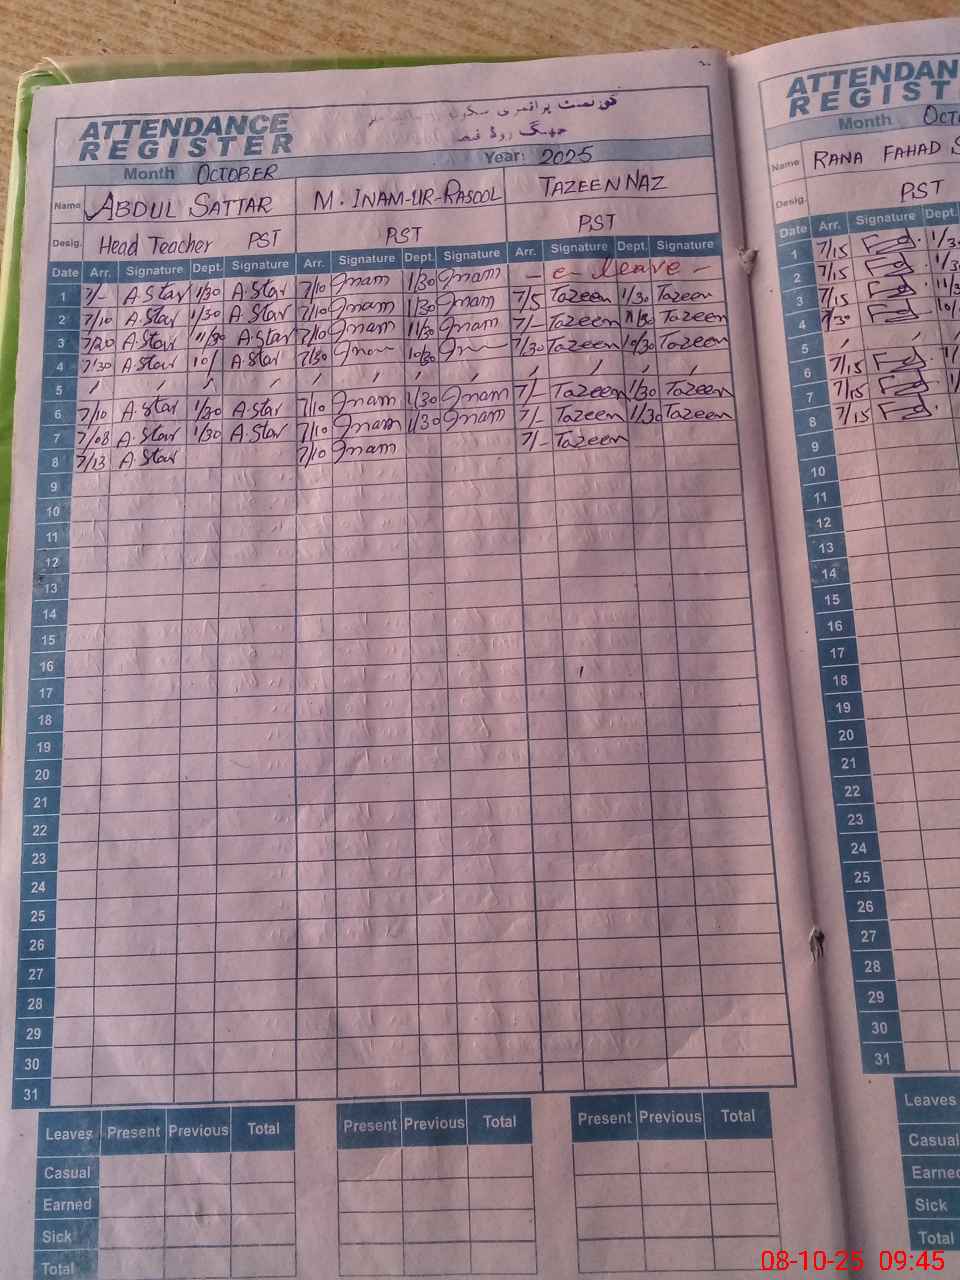 گورنمنٹ پرائمری سکول
جھنگ روڈ
ATTENDANCE
REGISTER
Month OCTOBER Year: 2025
Name ABDUL SATTAR M. INAM-UR-RASOOL TAZEEN NAZ
Desig. Head Teacher PST PST PST
Date Arr. Signature Dept. Signature Arr. Signature Dept. Signature Arr. Signature Dept. Signature
1 7/- A.Star 1/30 A.Star 7/10 Inam 1/30 Inam - e - leave -
2 7/10 A.Star 1/30 A.Star 7/10 Inam 1/30 Inam 7/5 Tazeen 1/30 Tazeen
3 7/20 A.Star 11/30 A.Star 7/10 Inam 11/30 Inam 7/- Tazeen 11/30 Tazeen
4 7/30 A.Star 10/ A.Star 7/30 Inam 10/30 Inam 7/30 Tazeen 10/30 Tazeen
5 , , , , , , , , , , , ,
6 7/10 A.Star 1/30 A.Star 7/10 Inam 1/30 Inam 7/- Tazeen 1/30 Tazeen
7 7/08 A.Star 1/30 A.Star 7/10 Inam 1/30 Inam 7/- Tazeen 1/30 Tazeen
8 7/13 A.Star 7/10 Inam 7/- Tazeen
9
10
11
12
13
14
15
16
17
18
19
20
21
22
23
24
25
26
27
28
29
30
31
Leaves Present Previous Total Present Previous Total Present Previous Total
Casual
Earned
Sick
Total
ATTENDAN
REGIST
Month OCTO
Name RANA FAHAD S
Desig. PST
Date Arr. Signature Dept.
1 7/15 1/3
2 7/15 1/30
3 7/15 11/3
4 7/30 10/
5 , , ,
6 7/15 1/
7 7/15
8 7/15
9
10
11
12
13
14
15
16
17
18
19
20
21
22
23
24
25
26
27
28
29
30
31
Leaves
Casual
Earned
Sick
Total
08-10-25 09:45